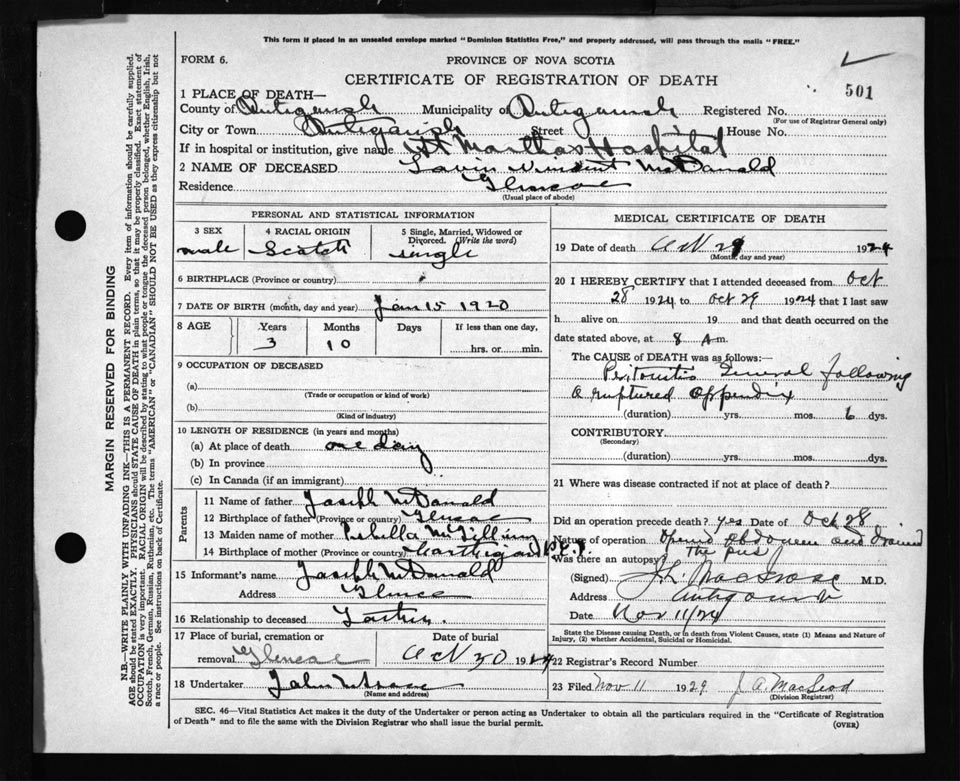 This form if placed in an unsealed envelope marked "Dominion Statistics Free," and property addressed, will pass through the mails "FREE."
FORM 6.
PROVINCE OF NOVA SCOTIA
CERTIFICATE OF REGISTRATION OF DEATH
501
1 PLACE OF DEATH—
County of Antigonish Municipality of Antigonish Registered No.
(For use of Registrar General only)
City or Town Antigonish Street House No.
If in hospital or institution, give name St Marthas Hospital
2 NAME OF DECEASED Vincent McDonald
Residence Glencoe
(Usual place of abode)
PERSONAL AND STATISTICAL INFORMATION
3 SEX 4 RACIAL ORIGIN 5 Single, Married, Widowed or Divorced. (Write the word)
male Scotch single
6 BIRTHPLACE (Province or country)
7 DATE OF BIRTH (month, day and year) Jan 15 1920
8 AGE Years Months Days If less than one day,
3 10 hrs. or min.
9 OCCUPATION OF DECEASED
(a)
(Trade or occupation or kind of work)
(b)
(Kind of industry)
10 LENGTH OF RESIDENCE (in years and months)
(a) At place of death one day
(b) In province
(c) In Canada (if an immigrant)
Parents
11 Name of father Joseph McDonald
12 Birthplace of father (Province or country) Glencoe
13 Maiden name of mother
14 Birthplace of mother (Province or country)
15 Informant's name Joseph McDonald
Address Glencoe
16 Relationship to deceased Father.
17 Place of burial, cremation or removal Glencoe
Date of burial Oct 30 1924
18 Undertaker John
(Name and address)
MEDICAL CERTIFICATE OF DEATH
19 Date of death Oct 29 1924
(Month, day and year)
20 I HEREBY CERTIFY that I attended deceased from Oct
28 1924 to Oct 29 1924 that I last saw
h alive on 19 and that death occurred on
date stated above, at 8 A m.
The CAUSE OF DEATH was as follows:—
Peritonitis General following
a ruptured appendix
(duration) yrs. mos. 6 dys.
CONTRIBUTORY.
(Secondary)
(duration) yrs. mos. dys.
21 Where was disease contracted if not at place of death?
Did an operation precede death? yes Date of Oct 28
Nature of operation Opened abdomen and drained
the pus
Was there an autopsy?
(Signed) M.D.
Address Antigonish
Date Nov 11/24
State the Disease causing Death, or in death from Violent Causes, state (1) Means and Nature of
Injury, (2) whether Accidental, Suicidal or Homicidal.
22 Registrar's Record Number
23 Filed Nov 11 1929 J A. MacLeod
(Division Registrar)
SEC. 46—Vital Statistics Act makes it the duty of the Undertaker or person acting as Undertaker to obtain all the particulars required in the "Certificate of Registration
of Death" and to file the same with the Division Registrar who shall issue the burial permit.
(OVER)
MARGIN RESERVED FOR BINDING
N.B.—WRITE PLAINLY WITH UNFADING INK—THIS IS A PERMANENT RECORD. Every item of information should be carefully supplied.
AGE should be stated EXACTLY. PHYSICIANS should STATE CAUSE OF DEATH in plain terms, so that it may be properly classified. Exact statement of
OCCUPATION is very important. RACIAL ORIGIN will be described by stating to what people or tongue the deceased person belonged, whether English, Irish,
Scotch, French, German, Russian, Ruthenian, etc. The terms "AMERICAN" or "CANADIAN" SHOULD NOT BE USED as they express citizenship but not
a race or people. See instructions on back of Certificate.